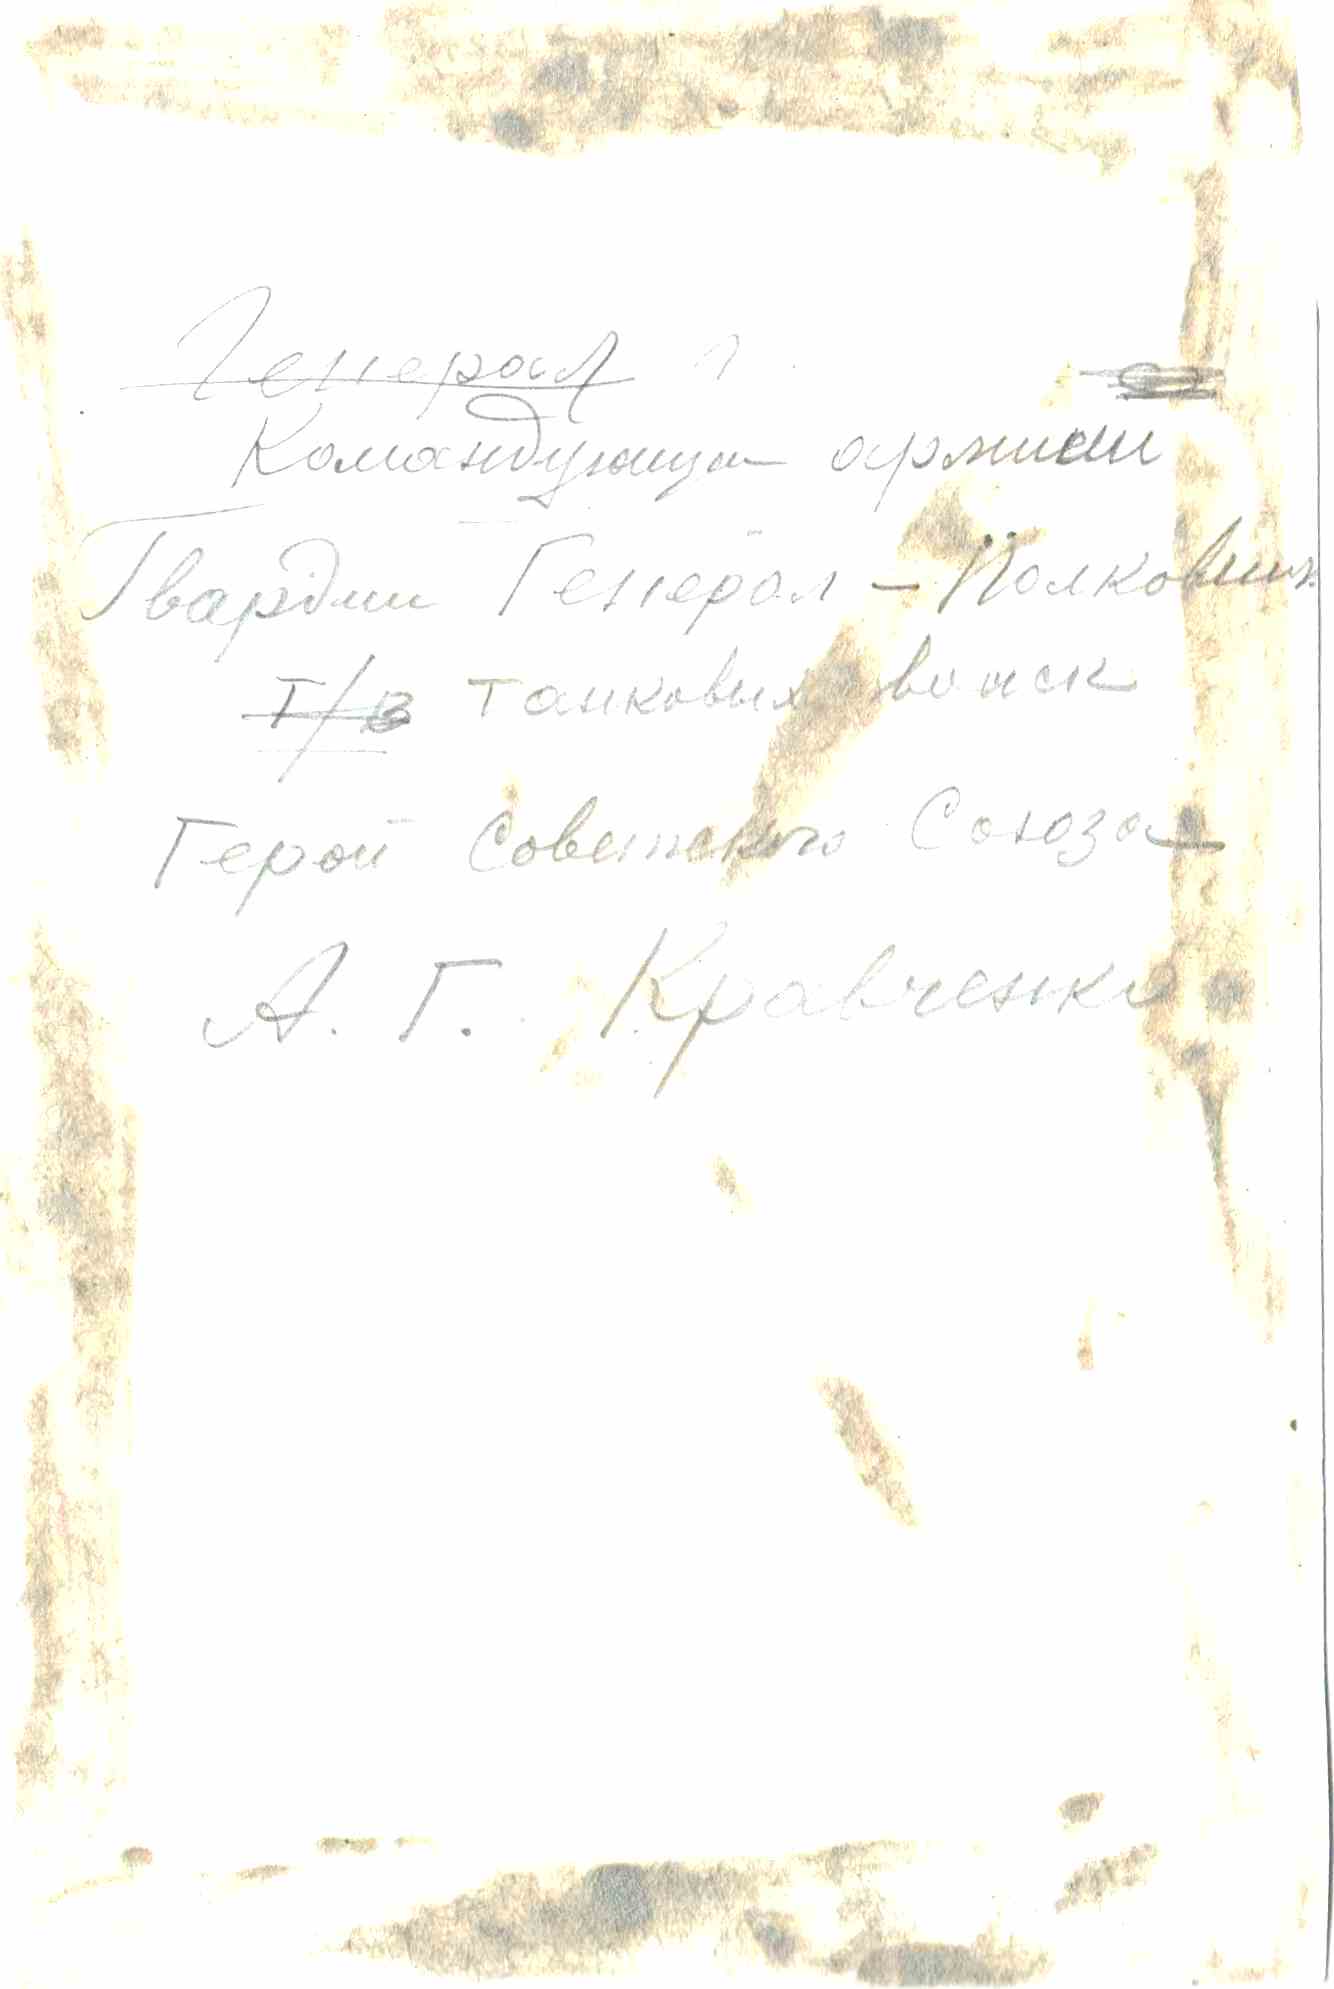 Генерал
Командующий армией
Гвардии Генерал-Полковник
т/в танковых войск
Герой Советского Союза
А. Г. Кравченко